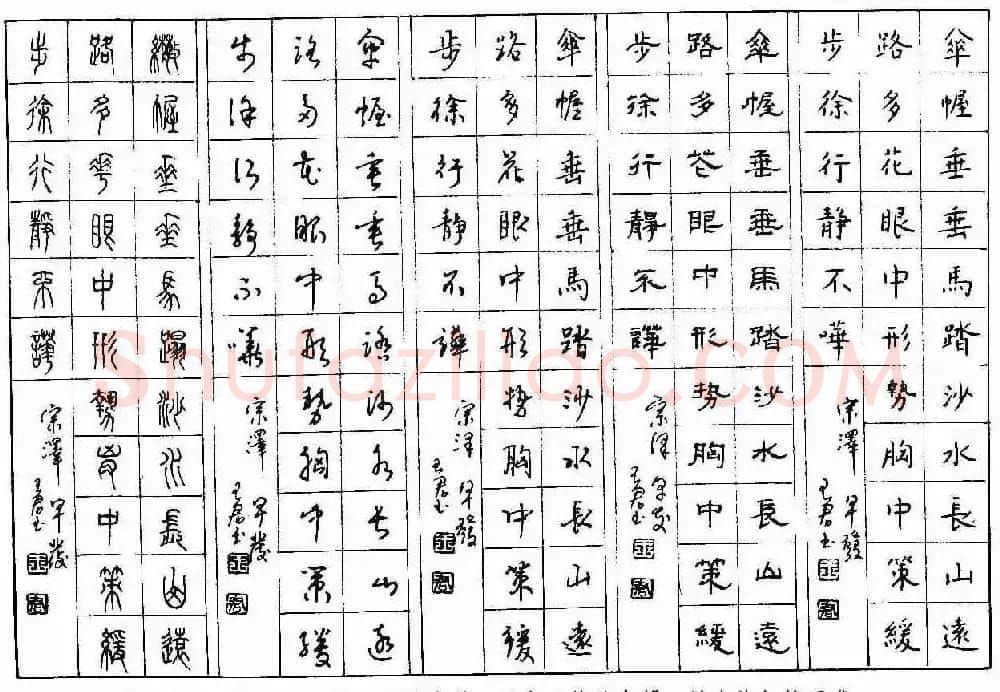 傘幄垂垂馬踏沙水長山遠
路多花眼中形勢胸中策緩
步徐行靜不嘩
宗澤 早發
傘幄垂垂馬踏沙水長山遠
路多花眼中形势胸中策緩
步徐行靜不譁
宗澤 早發
傘幄垂垂馬踏沙水長山遠
路多花眼中形势胸中策緩
步徐行靜不譁
宗澤 早發
傘幄垂垂馬踏沙水長山遠
路多花眼中形勢胸中策緩
步徐行靜不嘩
宗澤 早發
繖幄垂垂馬蹋沙水長山遠
路多花眼中形勢胸中策緩
步徐行靜不譁
宗澤 早發
Shufaziliao.COM